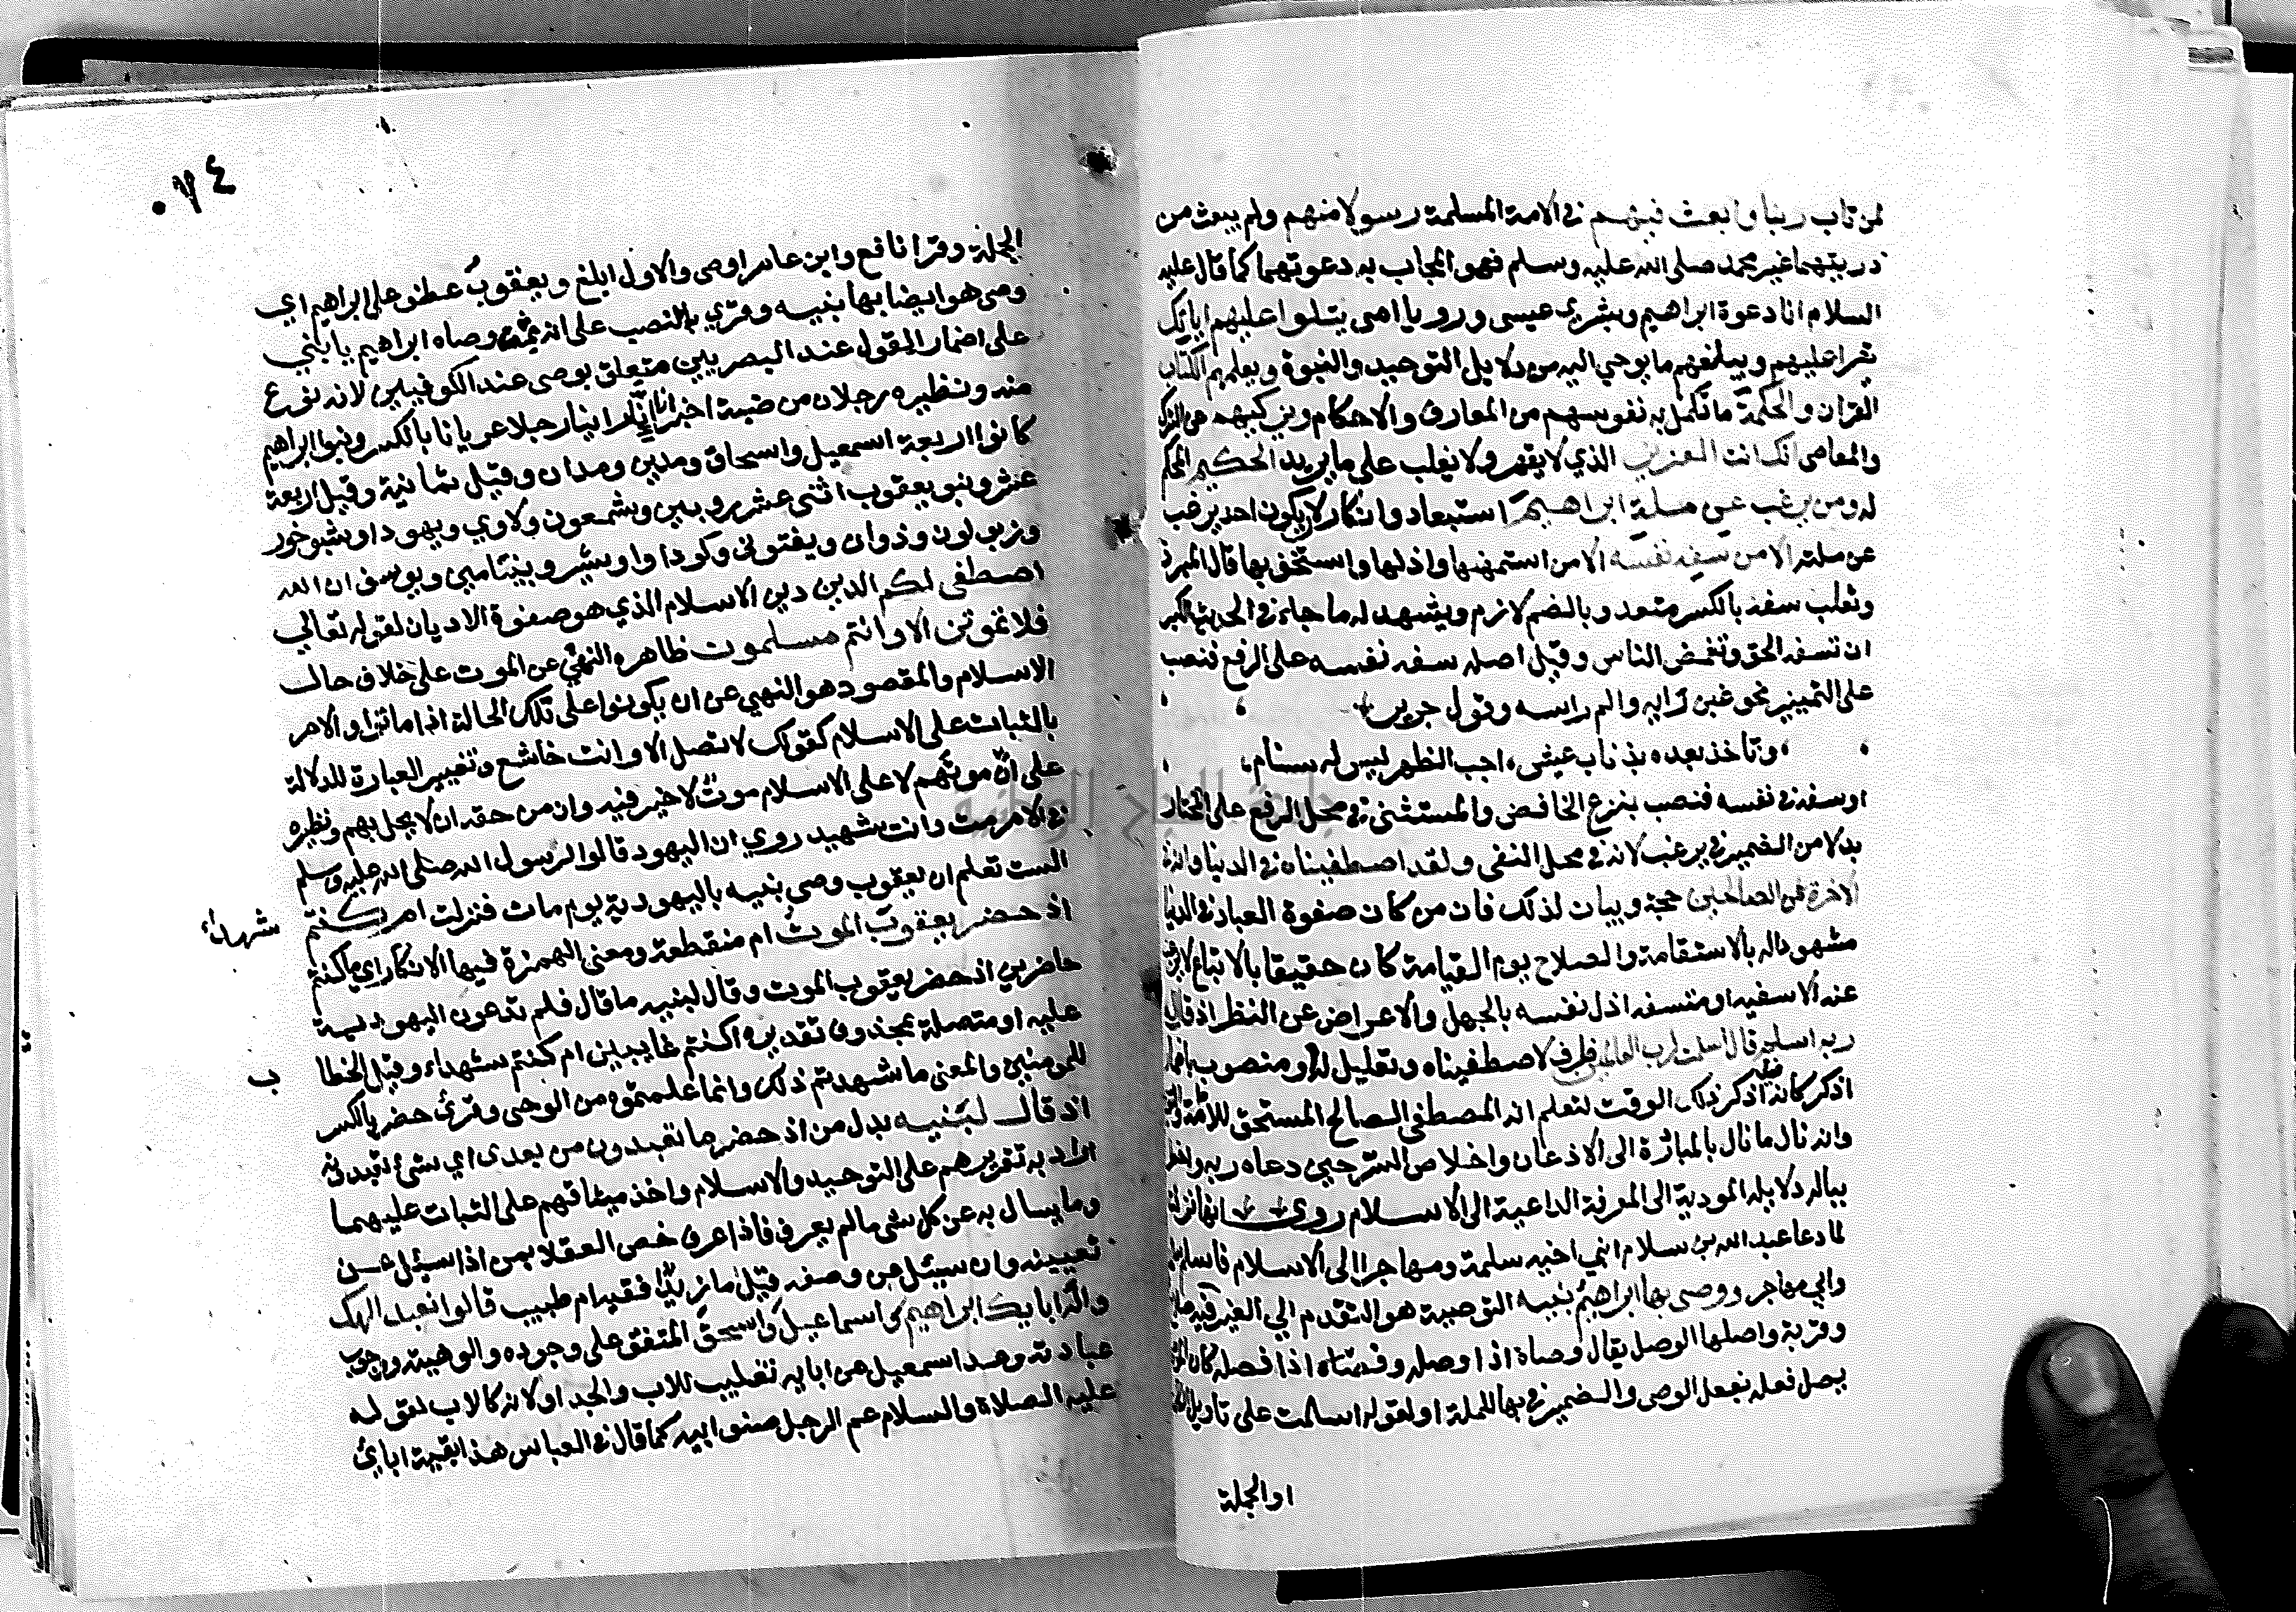 لمن تاب ربنا وابعث فيهم في الامة المسلمة رسولا منهم ولم يبعث من
ذريتهما غير محمد صلى الله عليه وسلم فهو المجاب به دعوتهما كما قال عليه
السلام انا دعوة ابراهيم وبشرى عيسى ورويا امى يتلوا عليهم اياتك
يقرا عليهم ويبلغهم ما يوحي اليه من دلايل التوحيد والنبوة ويعلمهم الكتاب
القران والحكمة ما تكمل به نفوسهم من المعارف والاحكام ويزكيهم عن الشرك
والمعاصى انك انت العزيز الذي لا يقهر ولا يغلب على ما يريد الحكيم المحكم
له ومن يرغب عن ملة ابراهيم استبعاد وانكار لان يكون احد يرغب
عن ملته الا من سفه نفسه الا من استمهنها واذلها واستخف بها قال المبرد
وثعلب سفه بالكسر متعد وبالضم لازم ويشهد له ما جاء في الحديث الكبر
ان تسفه الحق وتغمض الناس وقيل اصله سفه نفسه على الرفع فنصب
على التمييز نحو غبن رايه والم راسه وقول جرير
وتاخذ بعده بذناب عيش اجب الظهر ليس له سنام
او سفه في نفسه فنصب بنزع الخافض والمستثنى في محل الرفع على المختار
بدلا من الضمير في يرغب لانه في محل النفي ولقد اصطفيناه في الدنيا وانه في
الاخرة لمن الصالحين حجة وبيان لذلك فان من كان صفوة العباد في الدنيا
مشهودا له بالاستقامة والصلاح يوم القيامة كان حقيقا بالاتباع لا يرغب
عنه الا سفيه او متسفه اذل نفسه بالجهل والاعراض عن النظر اذ قال له
ربه اسلم قال اسلمت لرب العالمين ظرف لاصطفيناه وتعليل له او منصوب باضمار
اذكر كانه قيل اذكر ذلك الوقت لتعلم انه المصطفى الصالح المستحق للامامة
وانه نال ما نال بالمبادرة الى الاذعان واخلاص السر حين دعاه ربه واخطر
بباله دلايله المودية الى المعرفة الداعية الى الاسلام روى انها نزلت
لما دعا عبد الله بن سلام ابني اخيه سلمة ومهاجرا الى الاسلام فاسلم سلمة
وابي مهاجر ووصى بها ابراهيم بنيه التوصية هو التقدم الي الغير فيه صلاح
وقربة واصلها الوصل يقال وصاه اذا وصله وفصاه اذا فصله كان الموصي
يصل فعله بفعل الوصى والضمير في بها للملة او لقوله اسلمت على تاويل الكلمة
او الجملة
٠٧٤
الجملة وقرا نافع وابن عامر اوصى والاول ابلغ ويعقوب عطف على ابراهيم اي
وصى هو ايضا بها بنيه وقري بالنصب على انه ممن وصاه ابراهيم يا بني
على اضمار القول عند البصريين متعلق بوصى عند الكوفيين لانه نوع
منه ونظيره رجلان من ضبة اخبرانا انا راينا رجلا عريانا بالكسر وبنوا ابراهيم
كانوا اربعة اسمعيل واسحاق ومدين ومدان وقيل ثمانية وقيل اربعة
عشر وبنو يعقوب اثنى عشر روبين وشمعون ولاوي ويهودا ويشبوخور
وزبولون وذوان ويفتونى وكودا واوشير وبنيامين ويوسف ان الله
اصطفى لكم الدين دين الاسلام الذي هو صفوة الاديان لقوله تعالي
فلا تموتن الا وانتم مسلمون ظاهره النهي عن الموت على خلاف حال
الاسلام والمقصود هو النهي عن ان يكونوا على تلك الحالة اذا ماتوا والامر
بالثبات على الاسلام كقولك لا تصل الا وانت خاشع وتغيير العبارة للدلالة
على ان موتهم لا على الاسلام موت لا خير فيه وان من حقه ان لا يحل بهم ونظيره
في الامر مت وانت شهيد روي ان اليهود قالوا لرسول الله صلى الله عليه وسلم
الست تعلم ان يعقوب وصى بنيه باليهودية يوم مات فنزلت ام كنتم شهداء
اذ حضر يعقوب الموت ام منقطعة ومعنى الهمزة فيها الانكار اي ما كنتم
حاضرين اذ حضر يعقوب الموت وقال لبنيه ما قال فلم تدعون اليهودية
عليه او متصلة بمحذوف تقديره اكنتم غايبين ام كنتم شهداء وقيل الخطاب
للمومنين والمعنى ما شهدتم ذلك وانما علمتموه من الوحى وقرئ حضر بالكسر
اذ قال لبنيه بدل من اذ حضر ما تعبدون من بعدى اي شئ تعبدونه
اراد به تقريرهم على التوحيد والاسلام واخذ ميثاقهم على الثبات عليهما
وما يسال به عن كل شى ما لم يعرف فاذا عرف خص العقلا بمن اذا سيئل عن
تعيينه وان سيئل عن وصفه قيل ما زيد افقيه ام طبيب قالوا نعبد الهك
واله ابايك ابراهيم واسماعيل واسحق المتفق على وجوده والوهيته ووجوب
عبادته وعد اسمعيل من ابايه تغليب للاب والجد او لانه كالاب لقوله
عليه الصلاة والسلام عم الرجل صنو ابيه كما قال في العباس هذا بقية اباي